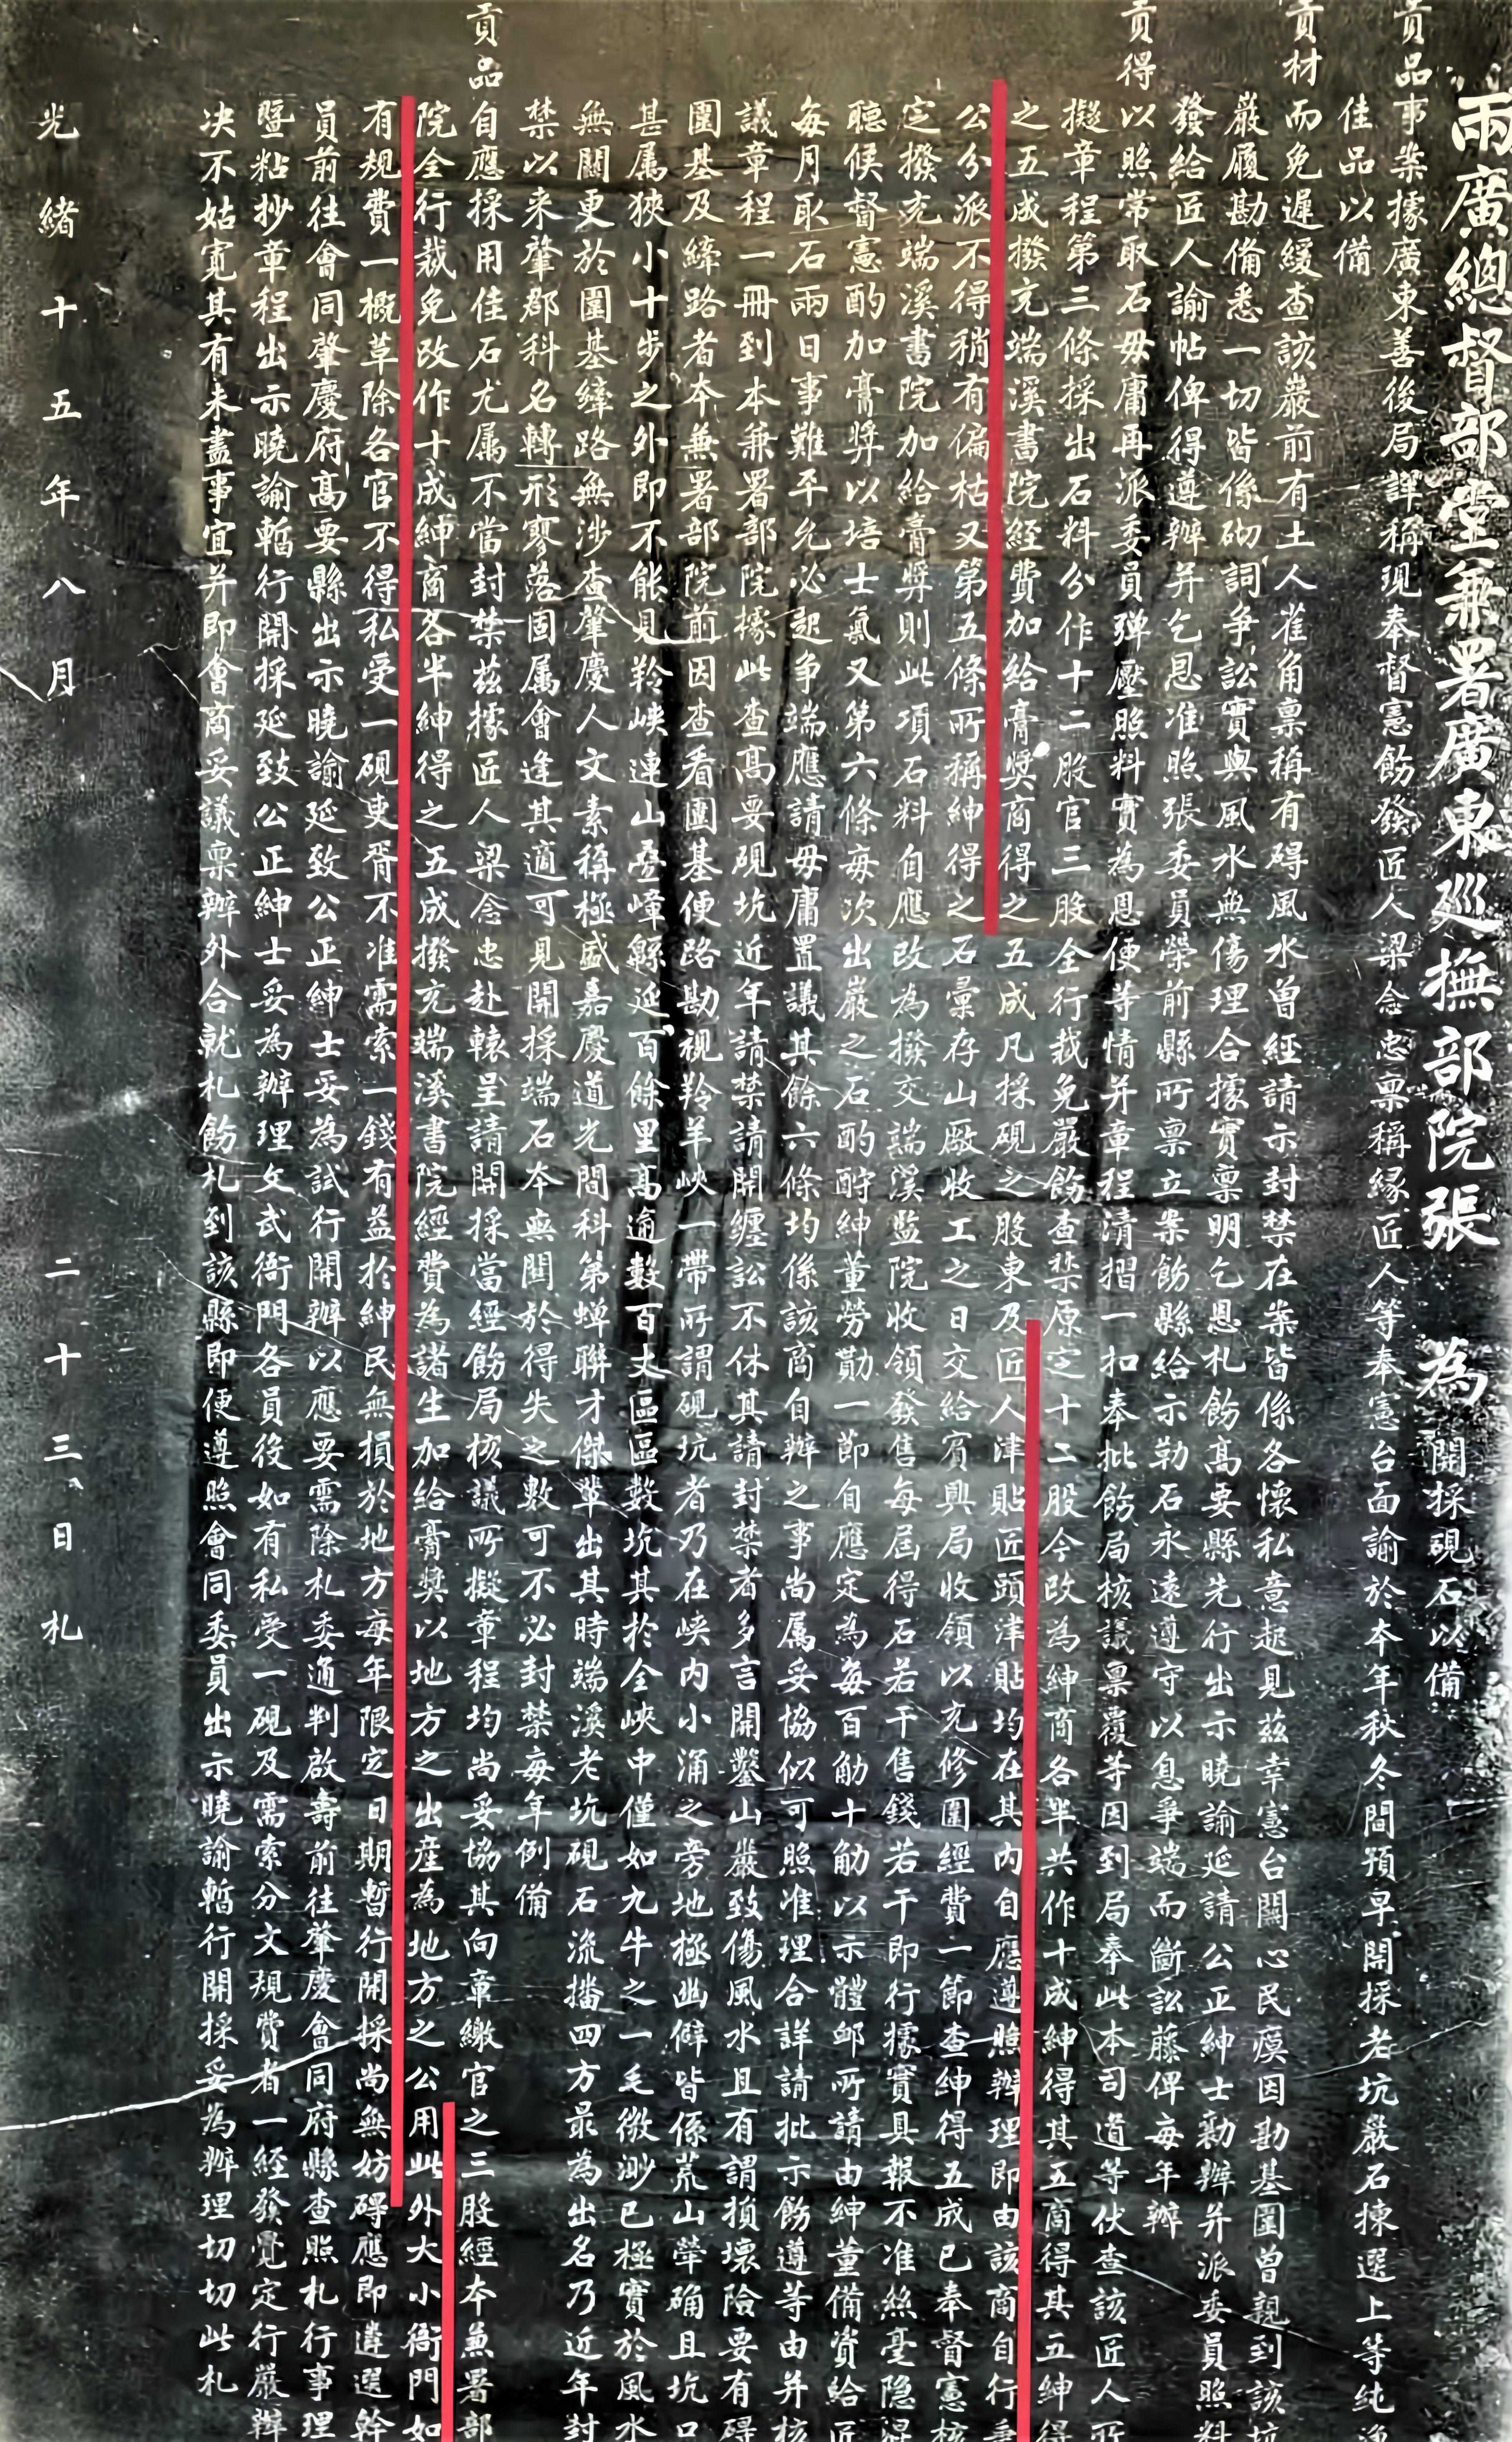 兩廣總督部堂兼署廣東巡撫部院張　為　開採硯石以備
貢品事案據廣東善後局詳稱現奉督憲飭發匠人梁念忠稟稱緣匠人等奉憲台面諭於本年秋冬間預早開採老坑巖石揀選上等純淨
佳品以備
貢材而免遲緩查該巖前有土人雀角稟稱有碍風水曾經請示封禁在案皆係各懷私意起見茲幸憲台關心民瘼因勘基圍曾親到該坑
巖履勘備悉一切皆係砌詞爭訟實與風水無傷理合據實稟明乞恩札飭高要縣先行出示曉諭延請公正紳士勷辦并派委員照料
發給匠人諭帖俾得遵辦并乞恩准照張委員榮前縣所稟立案飭縣給示勒石永遠遵守以息爭端而斷訟藤俾每年辦
貢得以照常取石毋庸再派委員彈壓照料實為恩便等情并章程清摺一扣奉批飭局核議稟覆等因到局奉此本司道等伏查該匠人所
擬章程第三條採出石料分作十二股官三股全行裁免嚴飭查禁原定十二股今改為紳商各半共作十成紳得其五商得其五紳得
之五成撥充端溪書院經費加給膏獎商得之五成凡採硯之股東及匠人津貼匠頭津貼均在其內自應遵照辦理即由該商自行
公分派不得稍有偏枯又第五條所稱紳得之石彙存山廠收工之日交給賓興局收領以充修圍經費一節查紳得五成已奉督憲核
定撥充端溪書院加給膏獎則此項石料自應改為撥交端溪監院收領發售每屆得石若干售錢若干即行據實具報不准絲毫隱混
聽候督憲酌加膏獎以培士氣又第六條每次出巖之石酌酧紳董勞勩一節自應定為每百觔十觔以示體邮所請由紳董備資給匠
每月取石兩日事難平允必起爭端應請毋庸置議其餘六條均係該商自辦之事尚属妥協似可照准理合詳請批示飭遵等由并核
議章程一冊到本兼署部院據此查高要硯坑近年請禁請開纏訟不休其請封禁者多言開鑿山巖致傷風水且有謂損壞險要有碍
圍基及縴路者本兼署部院前因查看圍基便路勘視羚羊峽一帶所謂硯坑者乃在峽内小涌之旁地極幽僻皆係荒山犖确且坑口
甚属狹小十步之外即不能見羚峽連山疊嶂緜延百餘里高逾數百丈區區數坑其於全峽中僅如九牛之一毛微渺已極實於風水
無關更於圍基縴路無涉查肇慶人文素稱極盛嘉慶道光間科第蟬聯才傑輩出其時端溪老坑硯石流播四方最為出名乃近年封
禁以來肇郡科名轉形寥落固属會逢其適可見開採端石本無關於得失之數可不必封禁每年例備
貢品自應採用佳石尤属不當封禁茲據匠人梁念忠赴轅呈請開採當經飭局核議所擬章程均尚妥協其向章繳官之三股經本兼署部
院全行裁免改作十成紳商各半紳得之五成撥充端溪書院經費為諸生加給膏獎以地方之出産為地方之公用此外大小衙門如
有規費一概草除各官不得私受一硯吏胥不准需索一錢有益於紳民無損於地方每年限定日期暫行開採尚無妨碍應即遴選幹
員前往會同肇慶府高要縣出示曉諭延致公正紳士妥為試行開辦以應要需除札委通判啟壽前往肇慶會同府縣查照札行事理
暨粘抄章程出示曉諭暫行開採延致公正紳士妥為辦理文武衙門各員役如有私受一硯及需索分文規費者一經發覺定行嚴辦
决不姑寛其有未盡事宜并即會商妥議稟辦外合就札飭札到該縣即便遵照會同委員出示曉諭暫行開採妥為辦理切切此札
光緒十五年八月　二十三日札